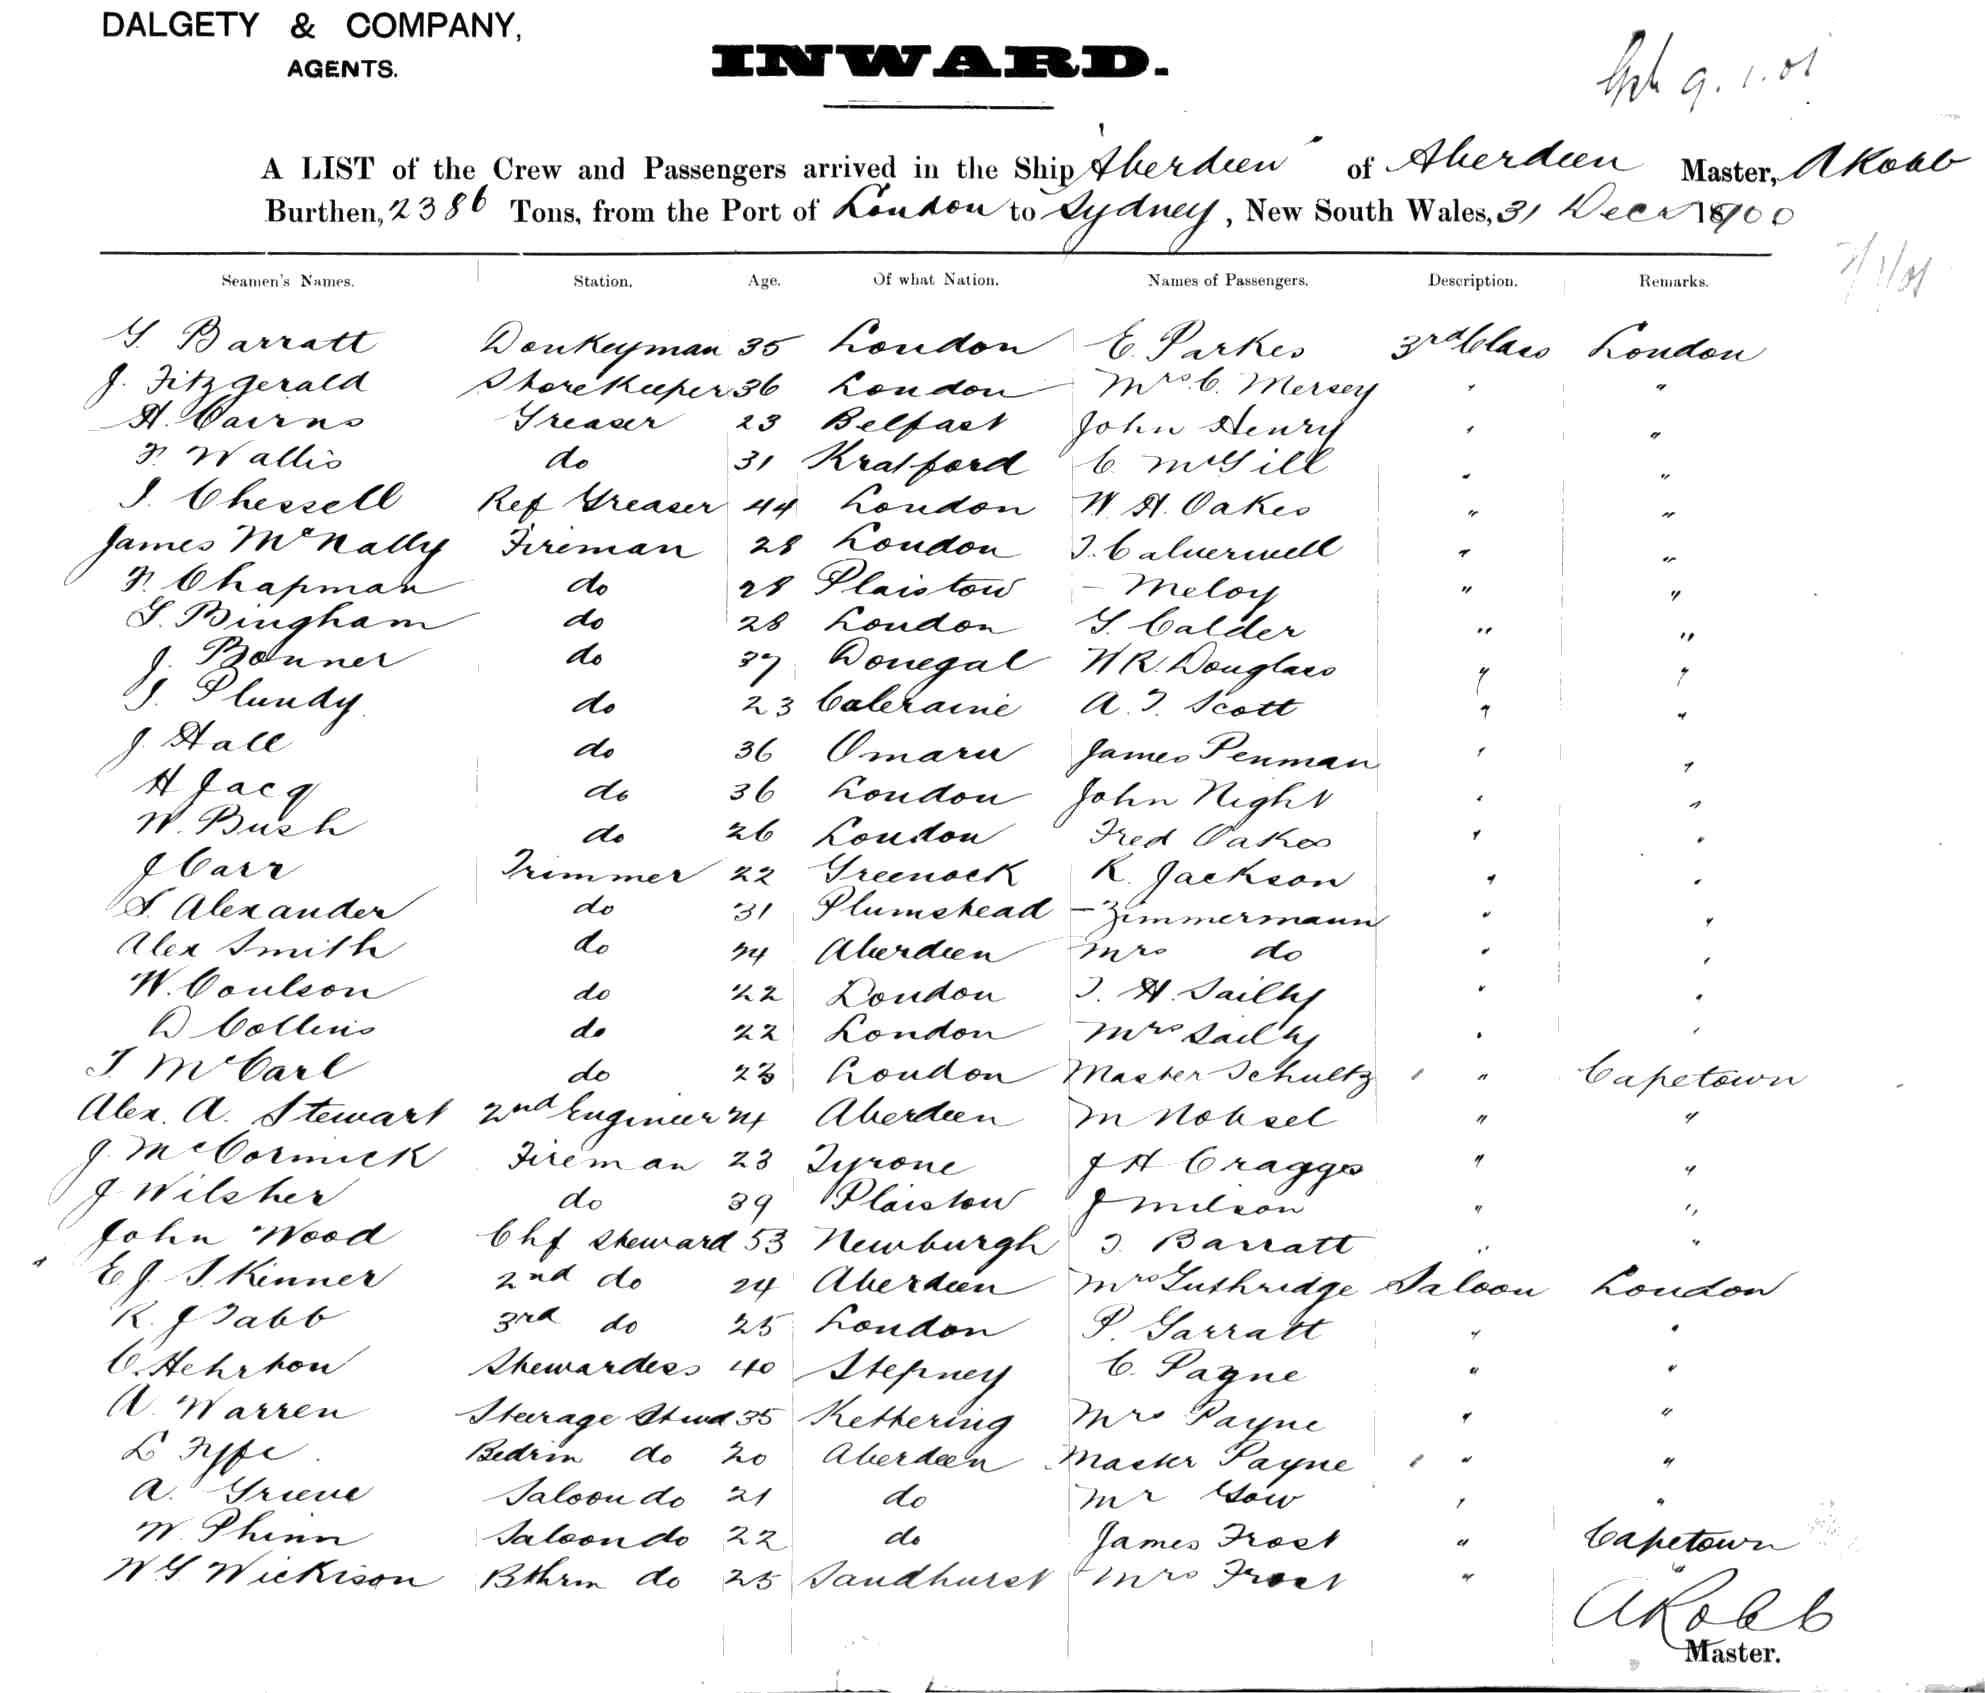 DALGETY & COMPANY,
AGENTS.
INWARD.
9.1.01
A LIST of the Crew and Passengers arrived in the Ship "Aberdeen" of Aberdeen Master, A Robb
Burthen, 2386 Tons, from the Port of London to Sydney, New South Wales, 31 Decr 1900
1/01
Seamen's Names. Station. Age. Of what Nation. Names of Passengers. Description. Remarks.
G. Barratt Donkeyman 35 London E. Parkes 3rd Class London
J. Fitzgerald Storekeeper 36 London Mrs C. Mersey " "
H. Cairns Greaser 23 Belfast John Henry " "
F. Wallis do 31 C. McGill " "
J. Chessell Ref Greaser 44 London W. H. Oakes " "
James McNally Fireman 28 London " "
F. Chapman do 28 Plaistow - Meloy " "
G. Bingham do 28 London G. Calder " "
J. Bonner do 37 Donegal W R. Douglass " "
J. Plundy do 23 Coleraine A. T. Scott " "
J. Hall do 36 Omaru James Penman " "
H Jacq do 36 London John Night " "
W. Bush do 26 London Fred Oakes " "
J Carr Trimmer 22 Greenock R. Jackson " "
S. Alexander do 31 Plumstead - Zimmermann " "
Alex Smith do 24 Aberdeen Mrs do " "
W. Coulson do 22 London T. H. " "
D Collins do 22 London Mrs " "
T. McCarl do 23 London Master Schultz " Capetown
Alex. A. Stewart 2nd Engineer 24 Aberdeen M " "
J. McCormick Fireman 23 Tyrone J H Craggs " "
J Wilsher do 39 Plaistow J Milson " "
John Wood Chf Steward 53 Newburgh T. Barratt " "
E. J. Skinner 2nd do 24 Aberdeen Mrs Guthridge Saloon London
R. J Tabb 3rd do 25 London P. Garratt " "
C. Stewardess 40 Stepney C. Payne " "
A. Warren Steerage Stwd 35 Kettering Mrs Payne " "
L Fyfe Bedrm do 20 Aberdeen Master Payne " "
A. Grieve Saloon do 21 do Mr Gow " "
W. Phinn Saloon do 22 do James Frost " Capetown
W G Wickison Bthrm do 25 Sandhurst Mrs Frost " "
A Robb
Master.